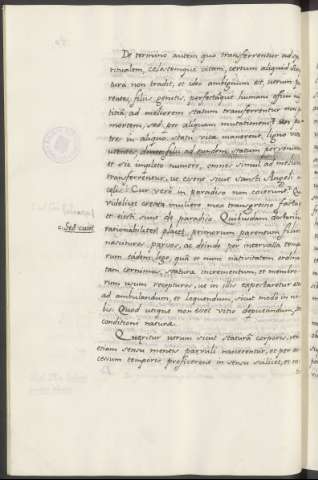 De termino autem quo transferrentur ad spi
ritualem, celestemque vitam, certum aliquid scri
tura non tradit, et ideo ambiguum est, utrum pa
rentes, filiis genitis, perfectisque humani officii iu
titia ad meliorem statum transferrentur non p
mortem, sed per aliquam mutationem. an pa
tres in aliquo statu vitae manerent, ligno vitae
utentes, donec filii ad eundem statum pervenirent
et sic impleto numero, omnes simul ad meliora
transferrentur, ut essent sicut sancti Angeli in
celis. Cur vero in paradiso non coierunt. Qu
videlicet creata muliere mox transgressio facta
et eiecti sunt de paradiso. Quibusdam
rationabiliter placet, primorum parentum filios
nascituros parvos, ac deinde per intervalla tempo
rum eadem lege, qua et nunc nativitatem ordina
tam cernimus, staturae incrementum, et membro
rum usum recepturos, ut in illis expectaretur aetas
ad ambulandum, et loquendum, sicut modo in no
bis. Quod utique non esset vitio deputandum, sed
conditioni naturae.
Queritur utrum sicut statura corporis, ita
etiam sensu mentis parvuli nascerentur, et per ac
cessum temporis proficerent in sensu
Sed cum